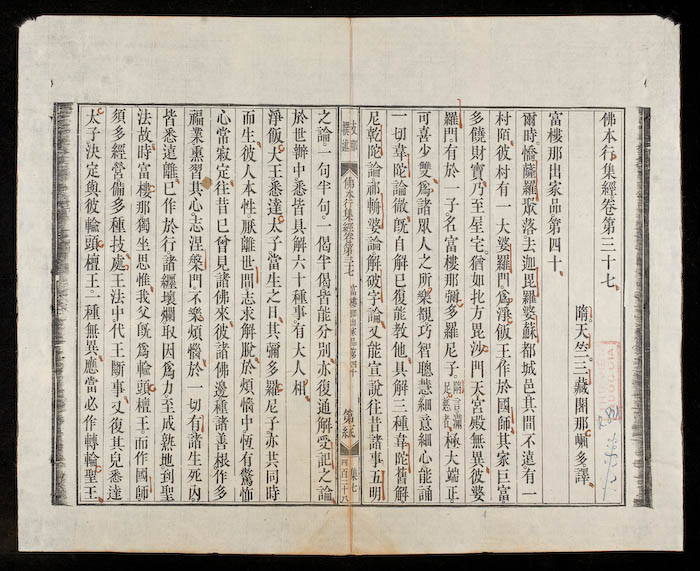 佛本行集經卷第三十七
隋天竺三藏闍那崛多譯
富樓那出家品第四十
爾時憍薩羅聚落去迦毘羅婆蘇都城邑其間不遠有一
村陌彼村有一大婆羅門為淨飯王作於國師其家巨富
多饒財寶乃至屋宅猶如北方毘沙門天宮殿無異彼婆
羅門有於一子名富樓那彌多羅尼子隋言滿足慈者極大端正
可喜少雙為諸眾人之所樂覩巧智聰慧細意細心能誦
一切韋陀論徹既自解已復能教他具解三種韋陀舊解
尼乾陀論祁輈婆論解破字論又能宣說往昔諸事五明
支那撰述 佛本行集經卷第三七 富樓那出家品第四十 第一紙 集七 四百二十八
之論一句半句一偈半偈皆能分別亦復通解受記之論
於世辯中悉皆具解六十種事有大人相
淨飯大王悉達太子當生之日其彌多羅尼子亦共同時
而生彼人本性厭離世間志求解脫於煩惱中恆有驚怖
心常寂定往昔已曾見諸佛來彼諸佛邊種諸善根作多
福業熏習其心志涅槃門不樂煩惱於一切有諸生死內
皆悉遠離已作於行諸纏壞爛取因為力至成熟地到聖
法故時富樓那獨坐思惟我父既為輪頭檀王而作國師
須多經營備多種技處王法中代王斷事又復其兒悉達
太子決定與彼輪頭檀王一種無異應當必作轉輪聖王